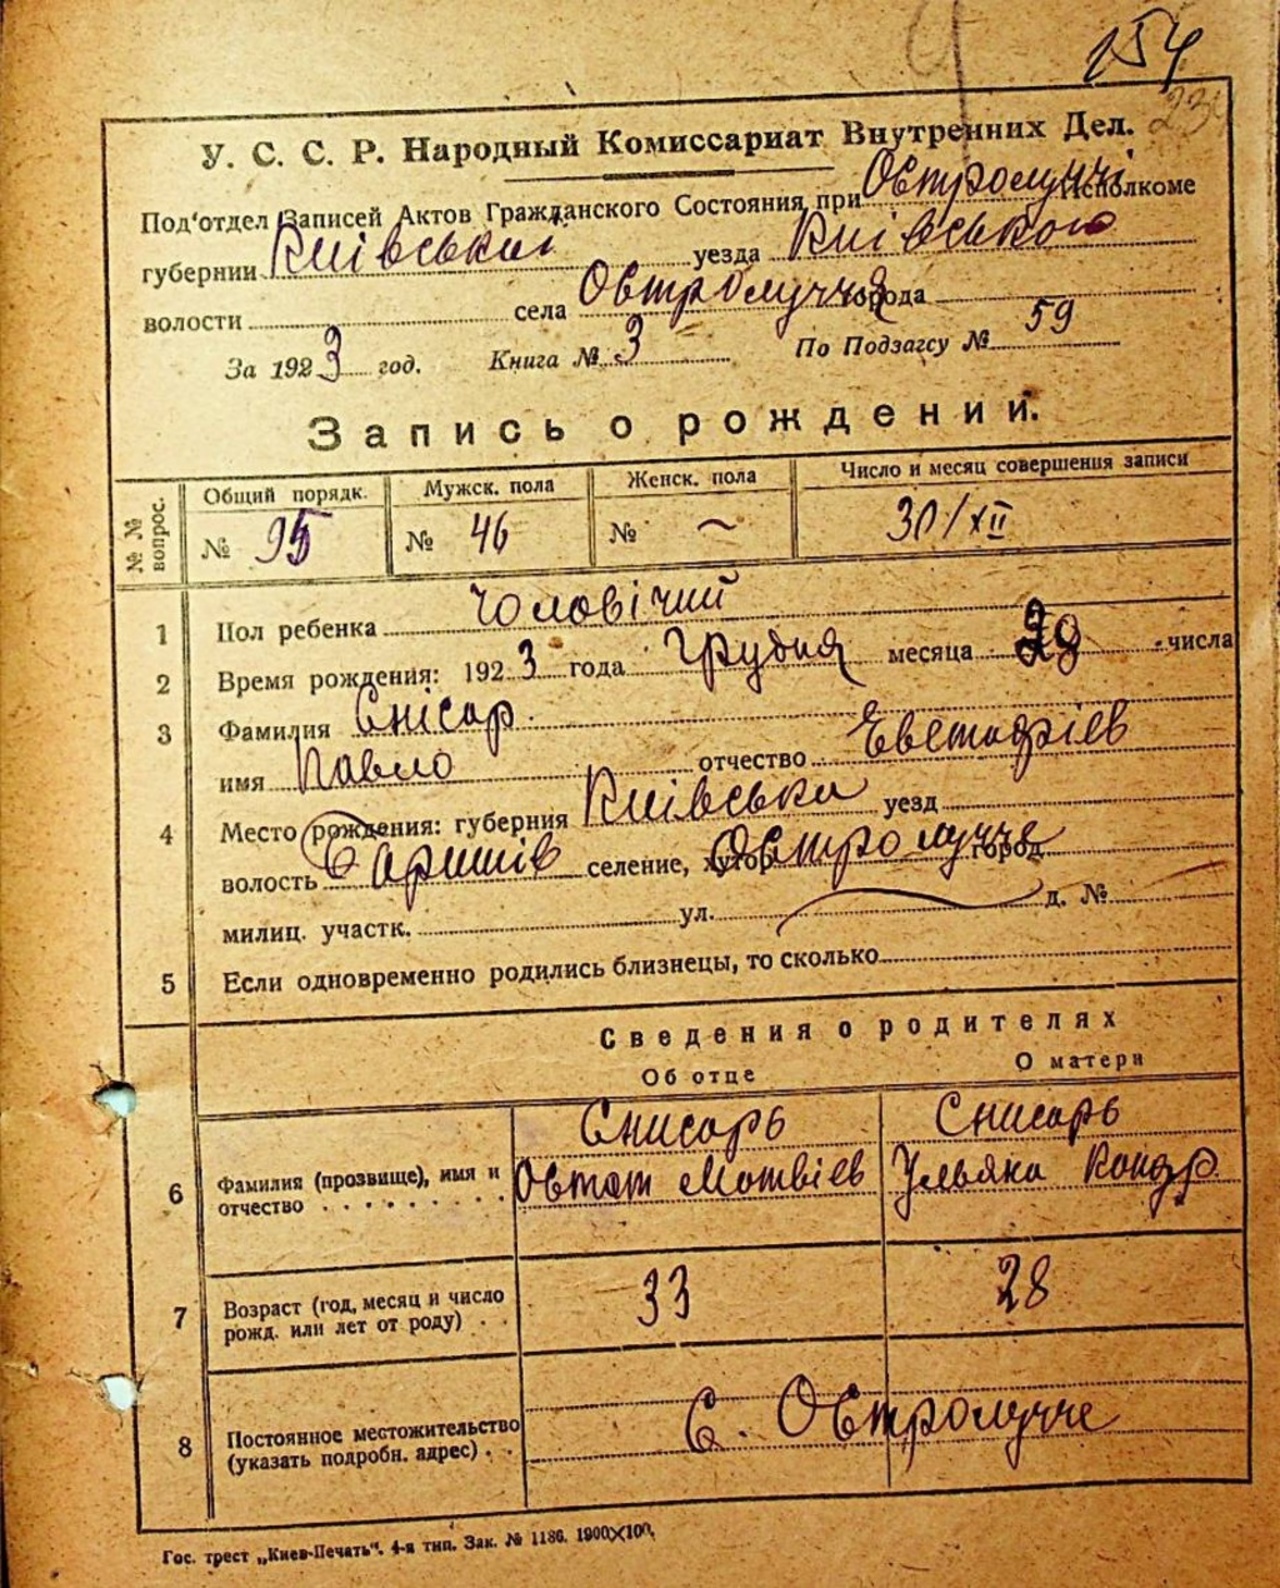 154
23
У. С. С. Р. Народный Комиссариат Внутренних Дел.
Под'отдел Записей Актов Гражданского Состояния при Остролуччі Исполкоме
губернии Київської уезда Київського
волости села Остролуччя города
За 1923 год. Книга № 3 По Подзагсу № 59
Запись о рождении.
№ № вопрос. Общий порядк. Мужск. пола Женск. пола Число и месяц совершения записи
№ 95 № 46 № ~ 30/XII
1 Пол ребенка Чоловічий
2 Время рождения: 1923 года Грудня месяца 29 числа
3 Фамилия Снісар
имя Павло отчество Евстафіев
4 Место рождения: губерния Київська уезд
волость Баришів селение, хутор Остролучче город
милиц. участк. ул. д. №
5 Если одновременно родились близнецы, то сколько
Сведения о родителях
Об отце О матери
Снисарь Снисарь
6 Фамилия (прозвище), имя и отчество Остап Мотвіев Ульяна Кондр.
7 Возраст (год, месяц и число рожд. или лет от роду) 33 28
8 Постоянное местожительство (указать подробн. адрес) С. Остролучче
Гос. трест „Киев-Печать". 4-я тип. Зак. № 1186. 1900×100.